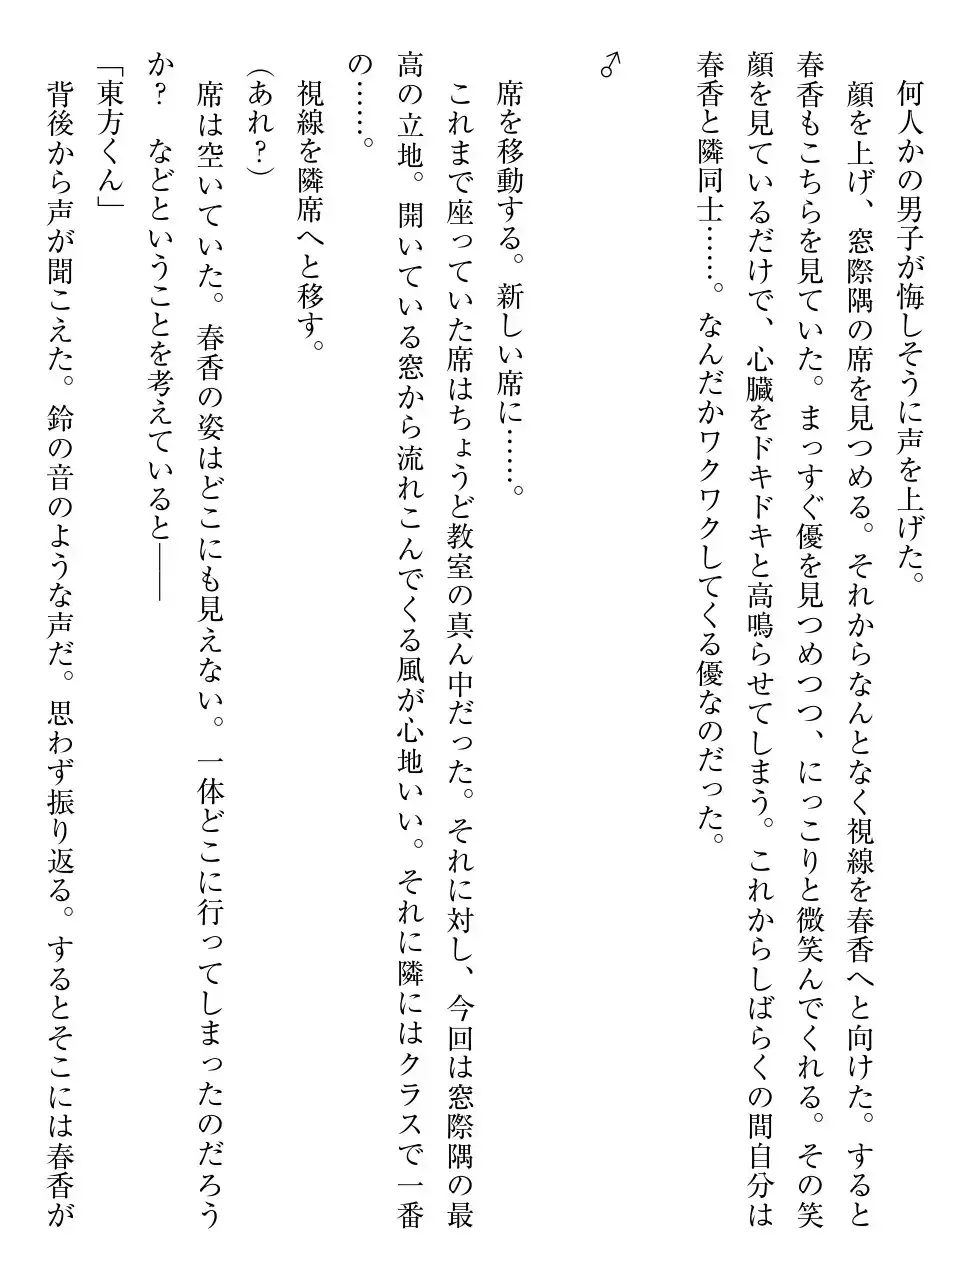 何人かの男子が悔しそうに声を上げた。
顔を上げ、窓際隅の席を見つめる。それからなんとなく視線を春香へと向けた。すると
春香もこちらを見ていた。まっすぐ優を見つめつつ、にっこりと微笑んでくれる。その笑
顔を見ているだけで、心臓をドキドキと高鳴らせてしまう。これからしばらくの間自分は
春香と隣同士……。なんだかワクワクしてくる優なのだった。
♂
席を移動する。新しい席に……。
これまで座っていた席はちょうど教室の真ん中だった。それに対し、今回は窓際隅の最
高の立地。開いている窓から流れこんでくる風が心地いい。それに隣にはクラスで一番
の……。
視線を隣席へと移す。
（あれ？）
席は空いていた。春香の姿はどこにも見えない。一体どこに行ってしまったのだろう
か？　などということを考えていると――
「東方くん」
背後から声が聞こえた。鈴の音のような声だ。思わず振り返る。するとそこには春香が